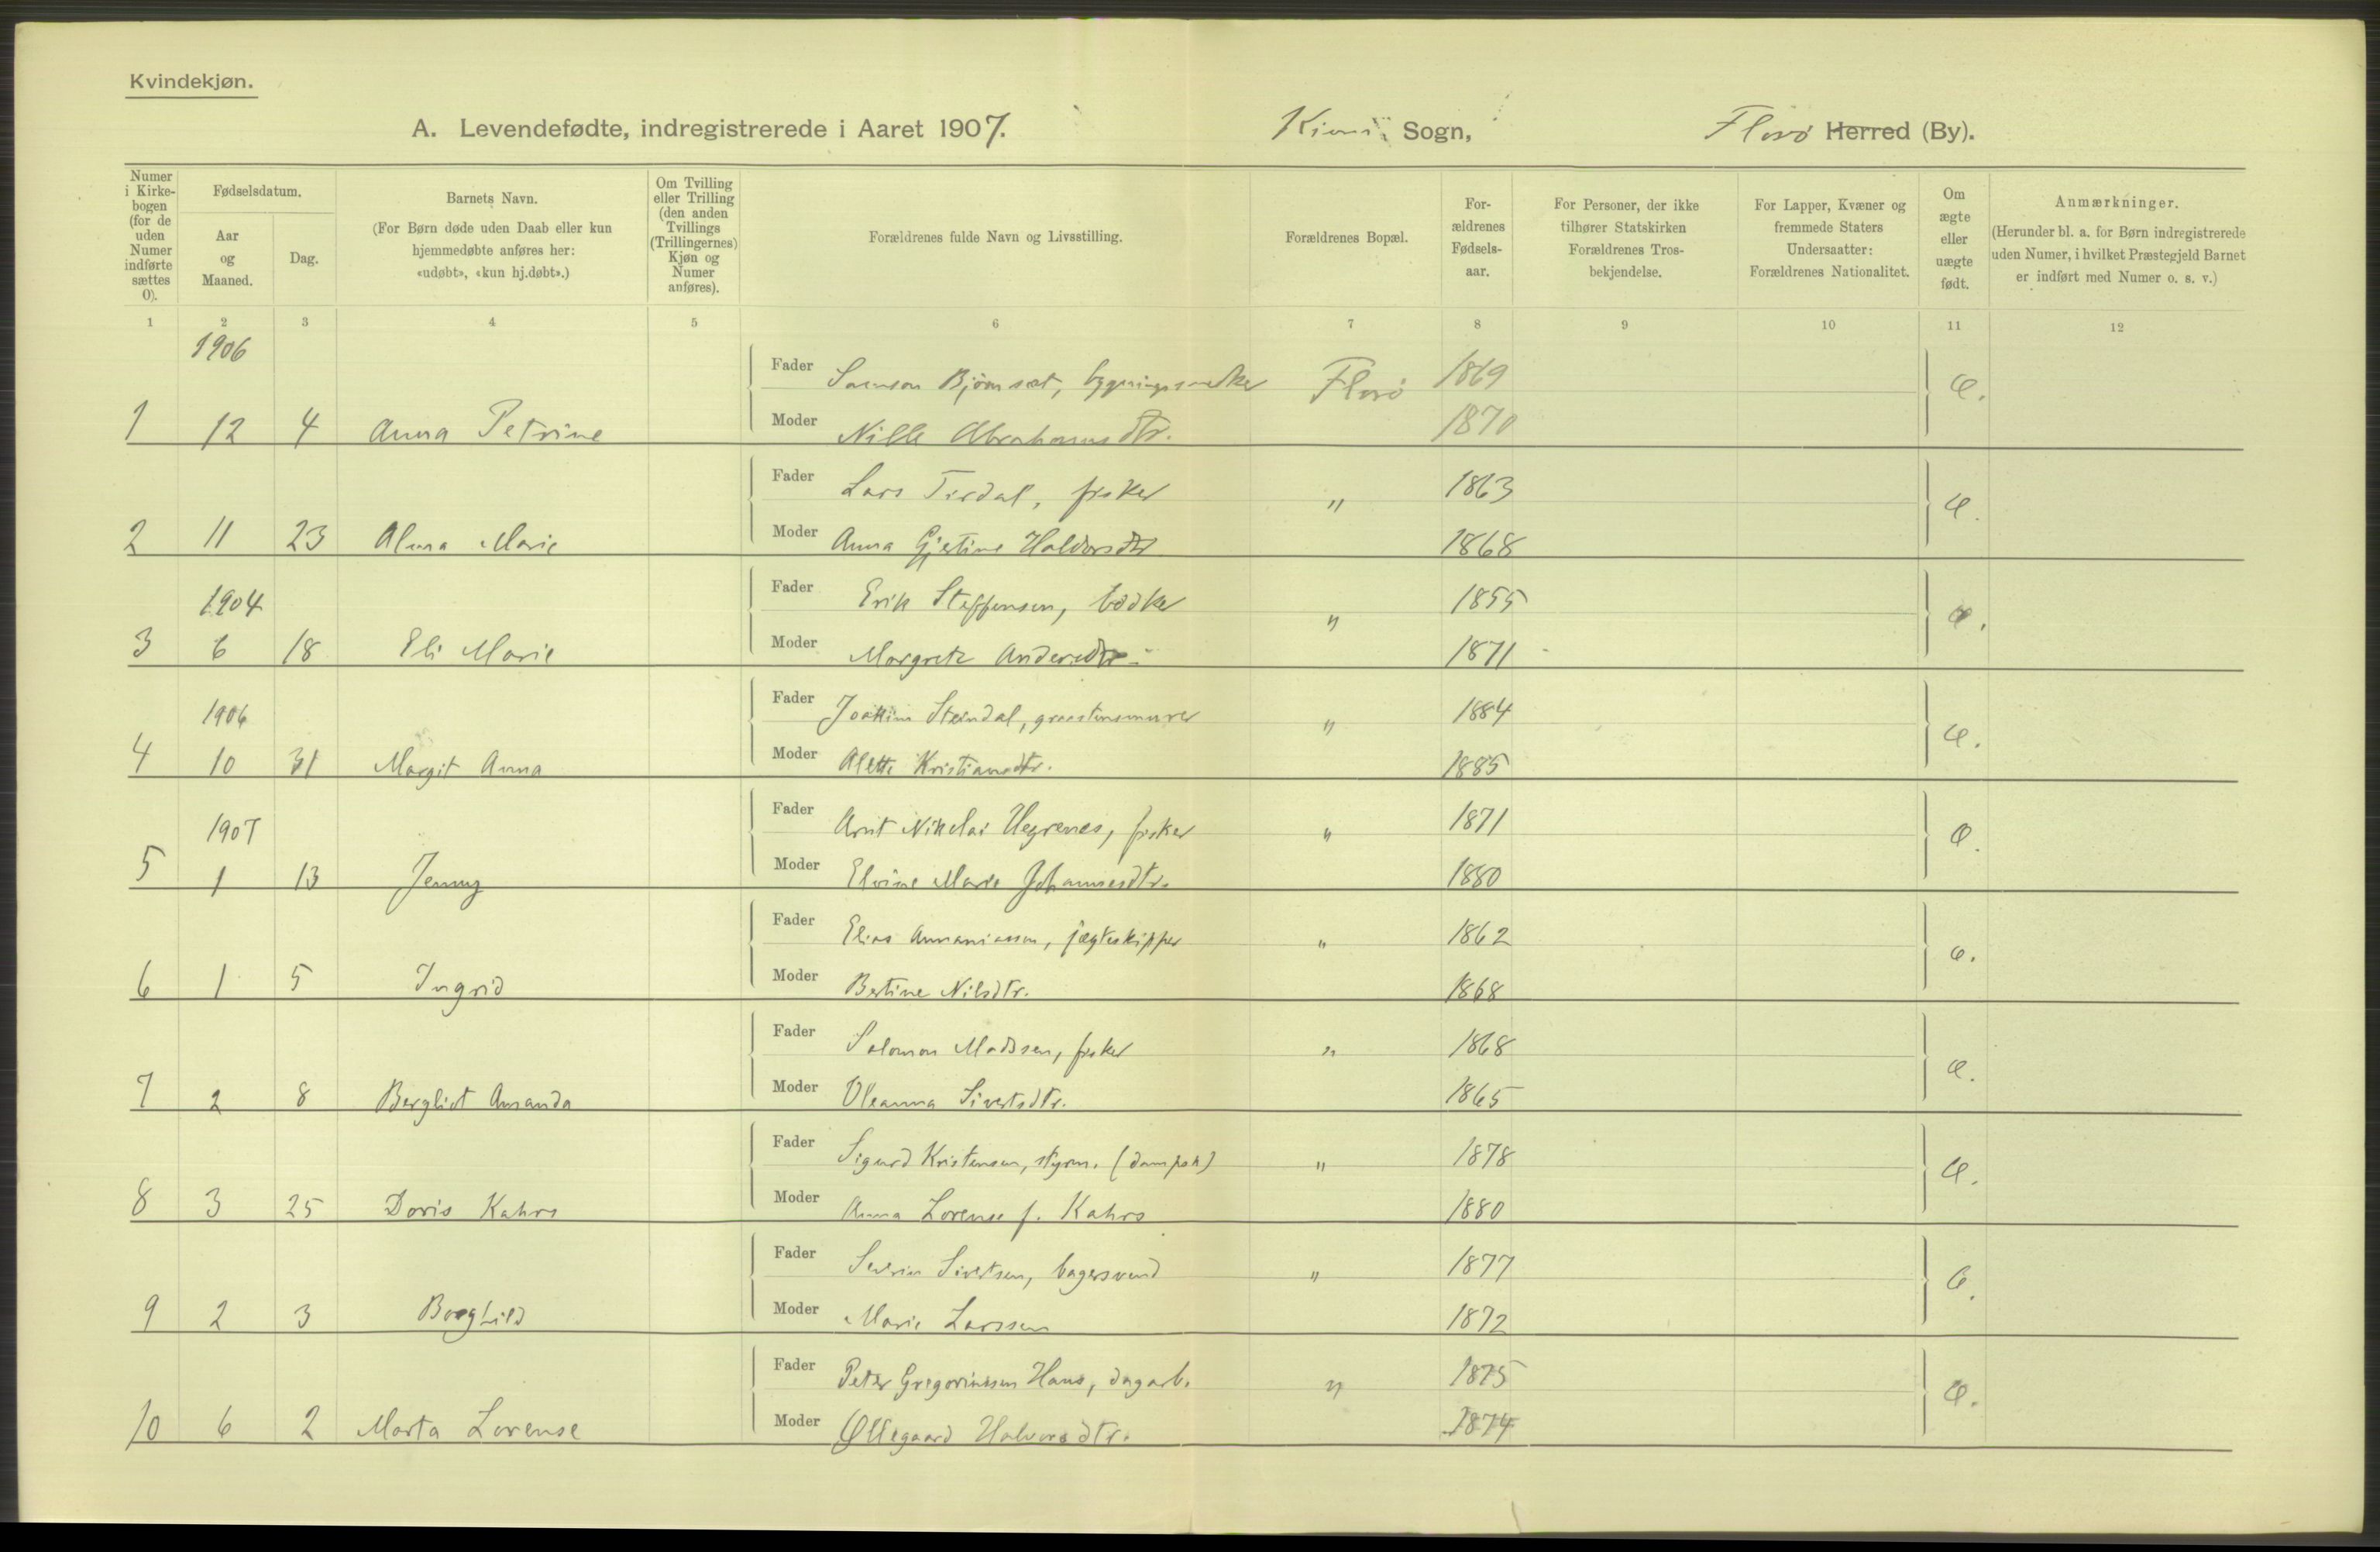 Kvindekjøn.
A. Levendefødte, indregistrerede i Aaret 1907. Kinn Sogn, Florø Herred (By).
Numer i Kirkebogen (for de uden Numer indførte sættes 0).
Fødselsdatum.
Aar og Maaned.
Dag.
Barnets Navn.
(For Børn døde uden Daab eller kun hjemmedøbte anføres her: «udøbt», «kun hj.døbt».)
Om Tvilling eller Trilling (den anden Tvillings (Trillingernes) Kjøn og Numer anføres).
Forældrenes fulde Navn og Livsstilling.
Forældrenes Bopæl.
Forældrenes Fødselsaar.
For Personer, der ikke tilhører Statskirken Forældrenes Trosbekjendelse.
For Lapper, Kvæner og fremmede Staters Undersaatter: Forældrenes Nationalitet.
Om ægte eller uægte født.
Anmærkninger.
(Herunder bl. a. for Børn indregistrerede uden Numer, i hvilket Præstegjeld Barnet er indført med Numer o. s. v.)
1 2 3 4 5 6 7 8 9 10 11 12
1906
Fader Bjørnset, Florø 1869 Æ.
1 12 4 Anna Petrine Moder Nille Abrahamsdtr. 1870
Fader Lars Tirdal, fisker " 1863 Æ.
2 11 23 Alma Marie Moder Anna Gjertine Haldorsdtr 1868
1904
Fader Erik Steffensen, bødker " 1855
3 6 18 Eli Marie Moder Margrete Andersdtr 1871
1906
Fader Joakim Steindal, graastensmurer " 1884 Æ.
4 10 31 Margit Anna Moder Alette Kristiansdtr. 1885
1907
Fader Arnt Nikolai Hegrenes, fisker " 1871 Æ.
5 1 13 Jenny Moder Elvine Marie Johannesdtr. 1880
Fader Elias Annaniassen, jægteskipper " 1862 Æ.
6 1 5 Ingrid Moder Bertine Nilsdtr. 1868
Fader Salomon Madssen, fisker " 1868 Æ.
7 2 8 Bergliot Amanda Moder Oleanna Sivertsdtr. 1865
Fader Sigurd Kristensen, styrm. (dampsk) " 1878 Æ.
8 3 25 Doris Kahrs Moder Anna Lorense f. Kahrs 1880
Fader Severin Sivertsen, bagersvend " 1877 Æ.
9 2 3 Borghild Moder Marie Larssen 1872
Fader Peter Gregoriussen Hans, dagarb. " 1875 Æ.
10 6 2 Marta Lorense Moder Øllegaard Halvorsdtr. 1874